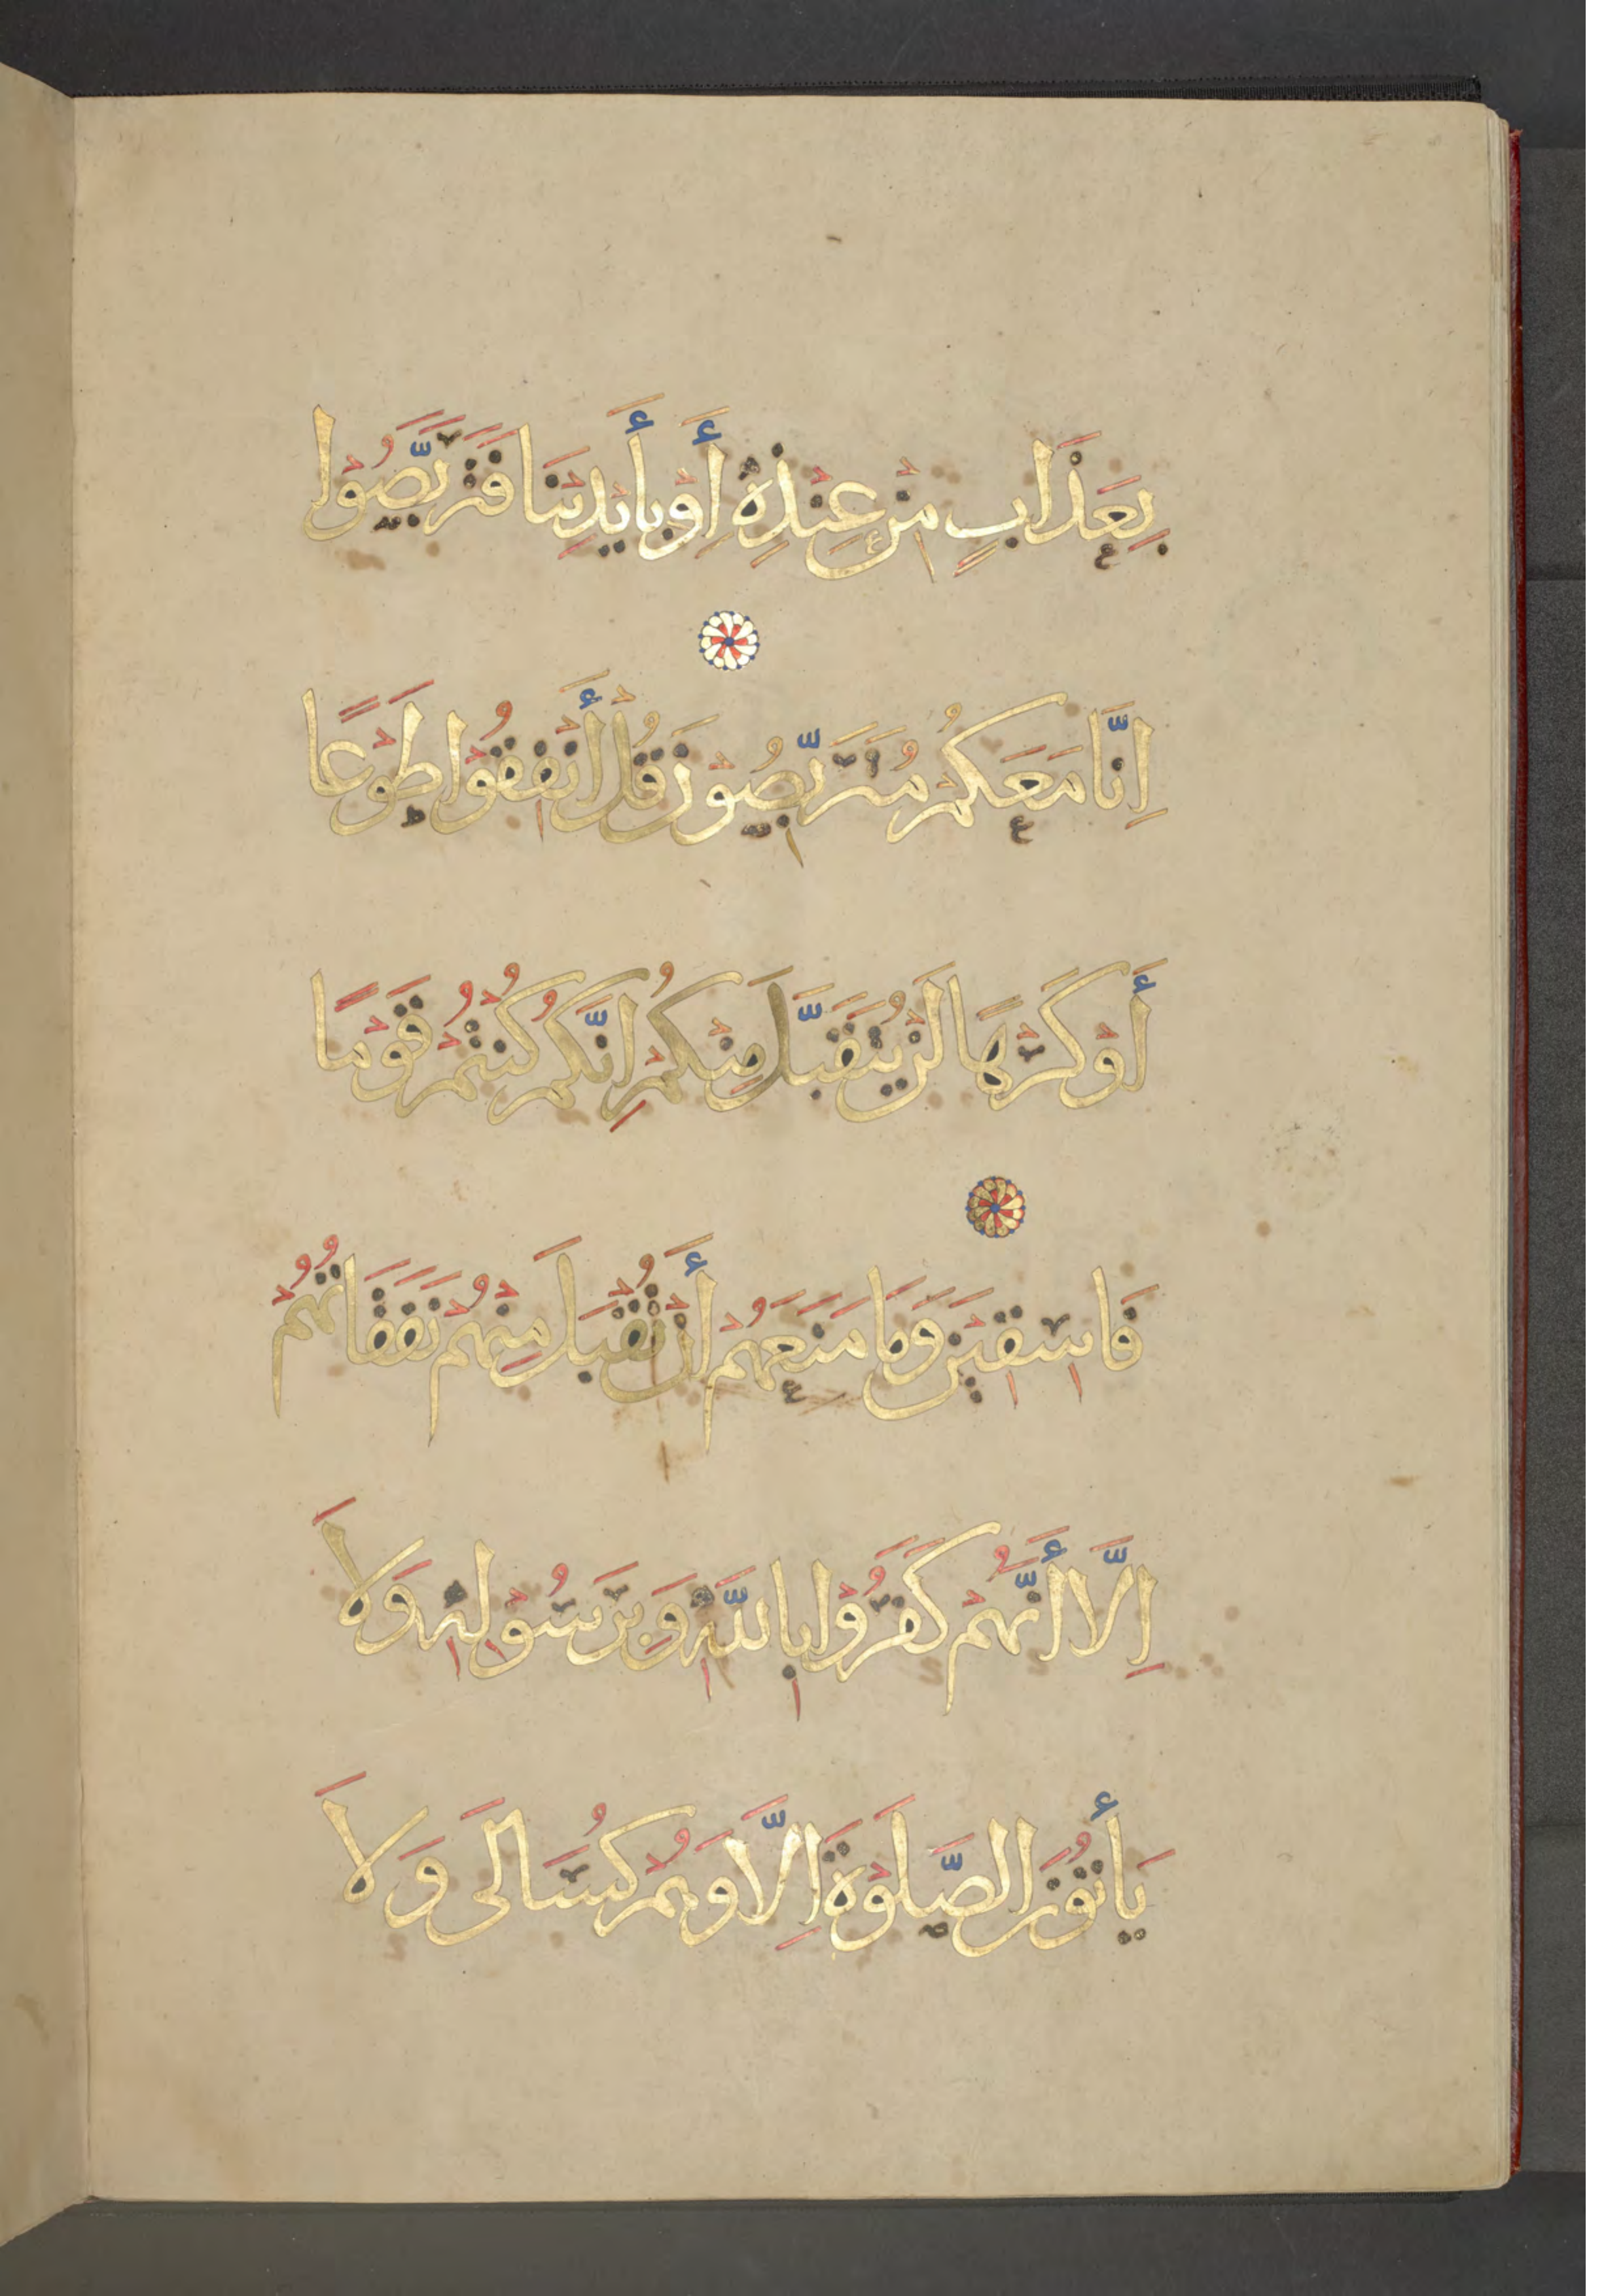 بِعَذَابٍ مِنْ عِنْدِهِ أَوْ بِأَيْدِينَا فَتَرَبَّصُوْا
اِنَّا مَعَكُمْ مُتَرَبِّصُوْنَ قُلْ أَنْفِقُوْا طَوْعًا
أَوْ كَرْهًا لَنْ يُتَقَبَّلَ مِنْكُمُ اِنَّكُمْ كُنْتُمْ قَوْمًا
فَاسِقِيْنَ وَمَا مَنَعَهُمْ أَنْ تُقْبَلَ مِنْهُمْ نَفَقَاتُهُمُ
اِلَّا أَنَّهُمْ كَفَرُوْا بِاللهِ وَبِرَسُوْلِهِ وَلاَ
يَأْتُوْنَ الصَّلَوْةَ اِلَّا وَهُمْ كُسَالَى وَلاَ